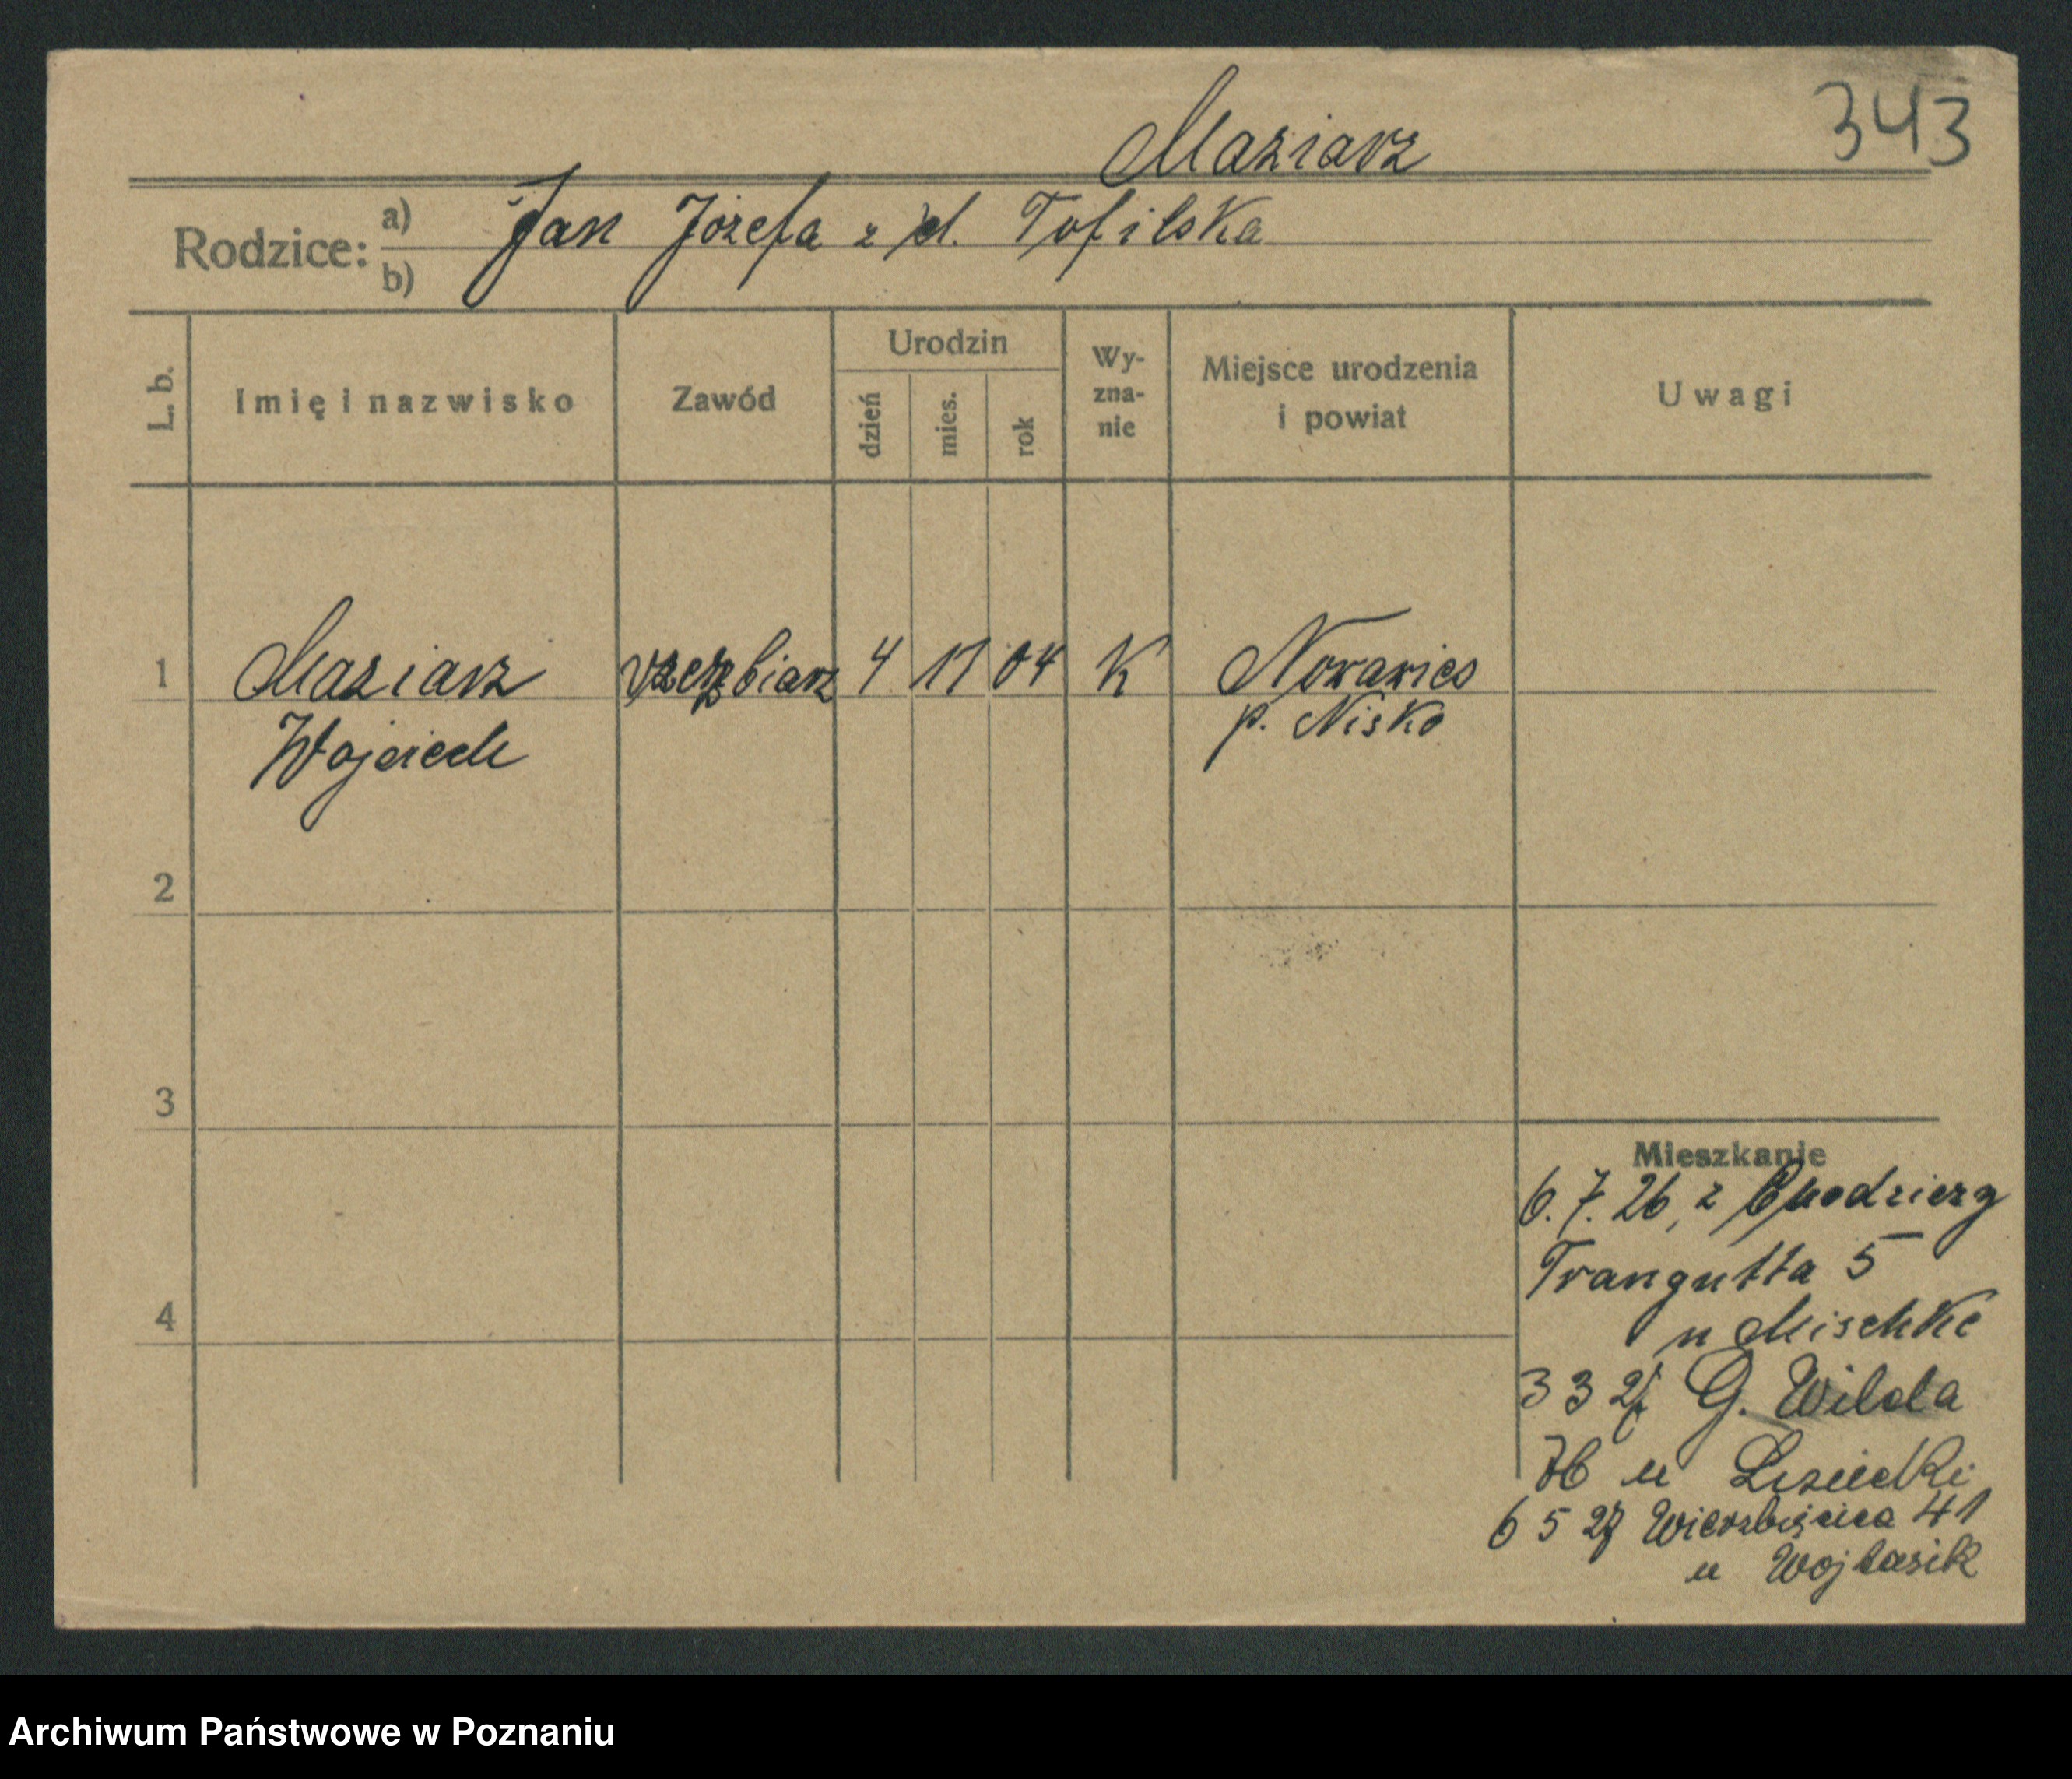 343
Maziarz
Rodzice: a) Jan Józefa z d. Tofilska
b)
L. b. Imię i nazwisko Zawód Urodzin dzień mies. rok Wy-zna-nie Miejsce urodzenia i powiat Uwagi
1 Maziarz 4 11 04 K
Wojciech p. Nisko
2
3
4
Mieszkanie
6. 7. 26, z Chodzierz
Trangutta 5
u Mischke
3 3 27 G. Wilda
u
6 5 27 Wierzbięcica 41
u Wojtasik
Archiwum Państwowe w Poznaniu